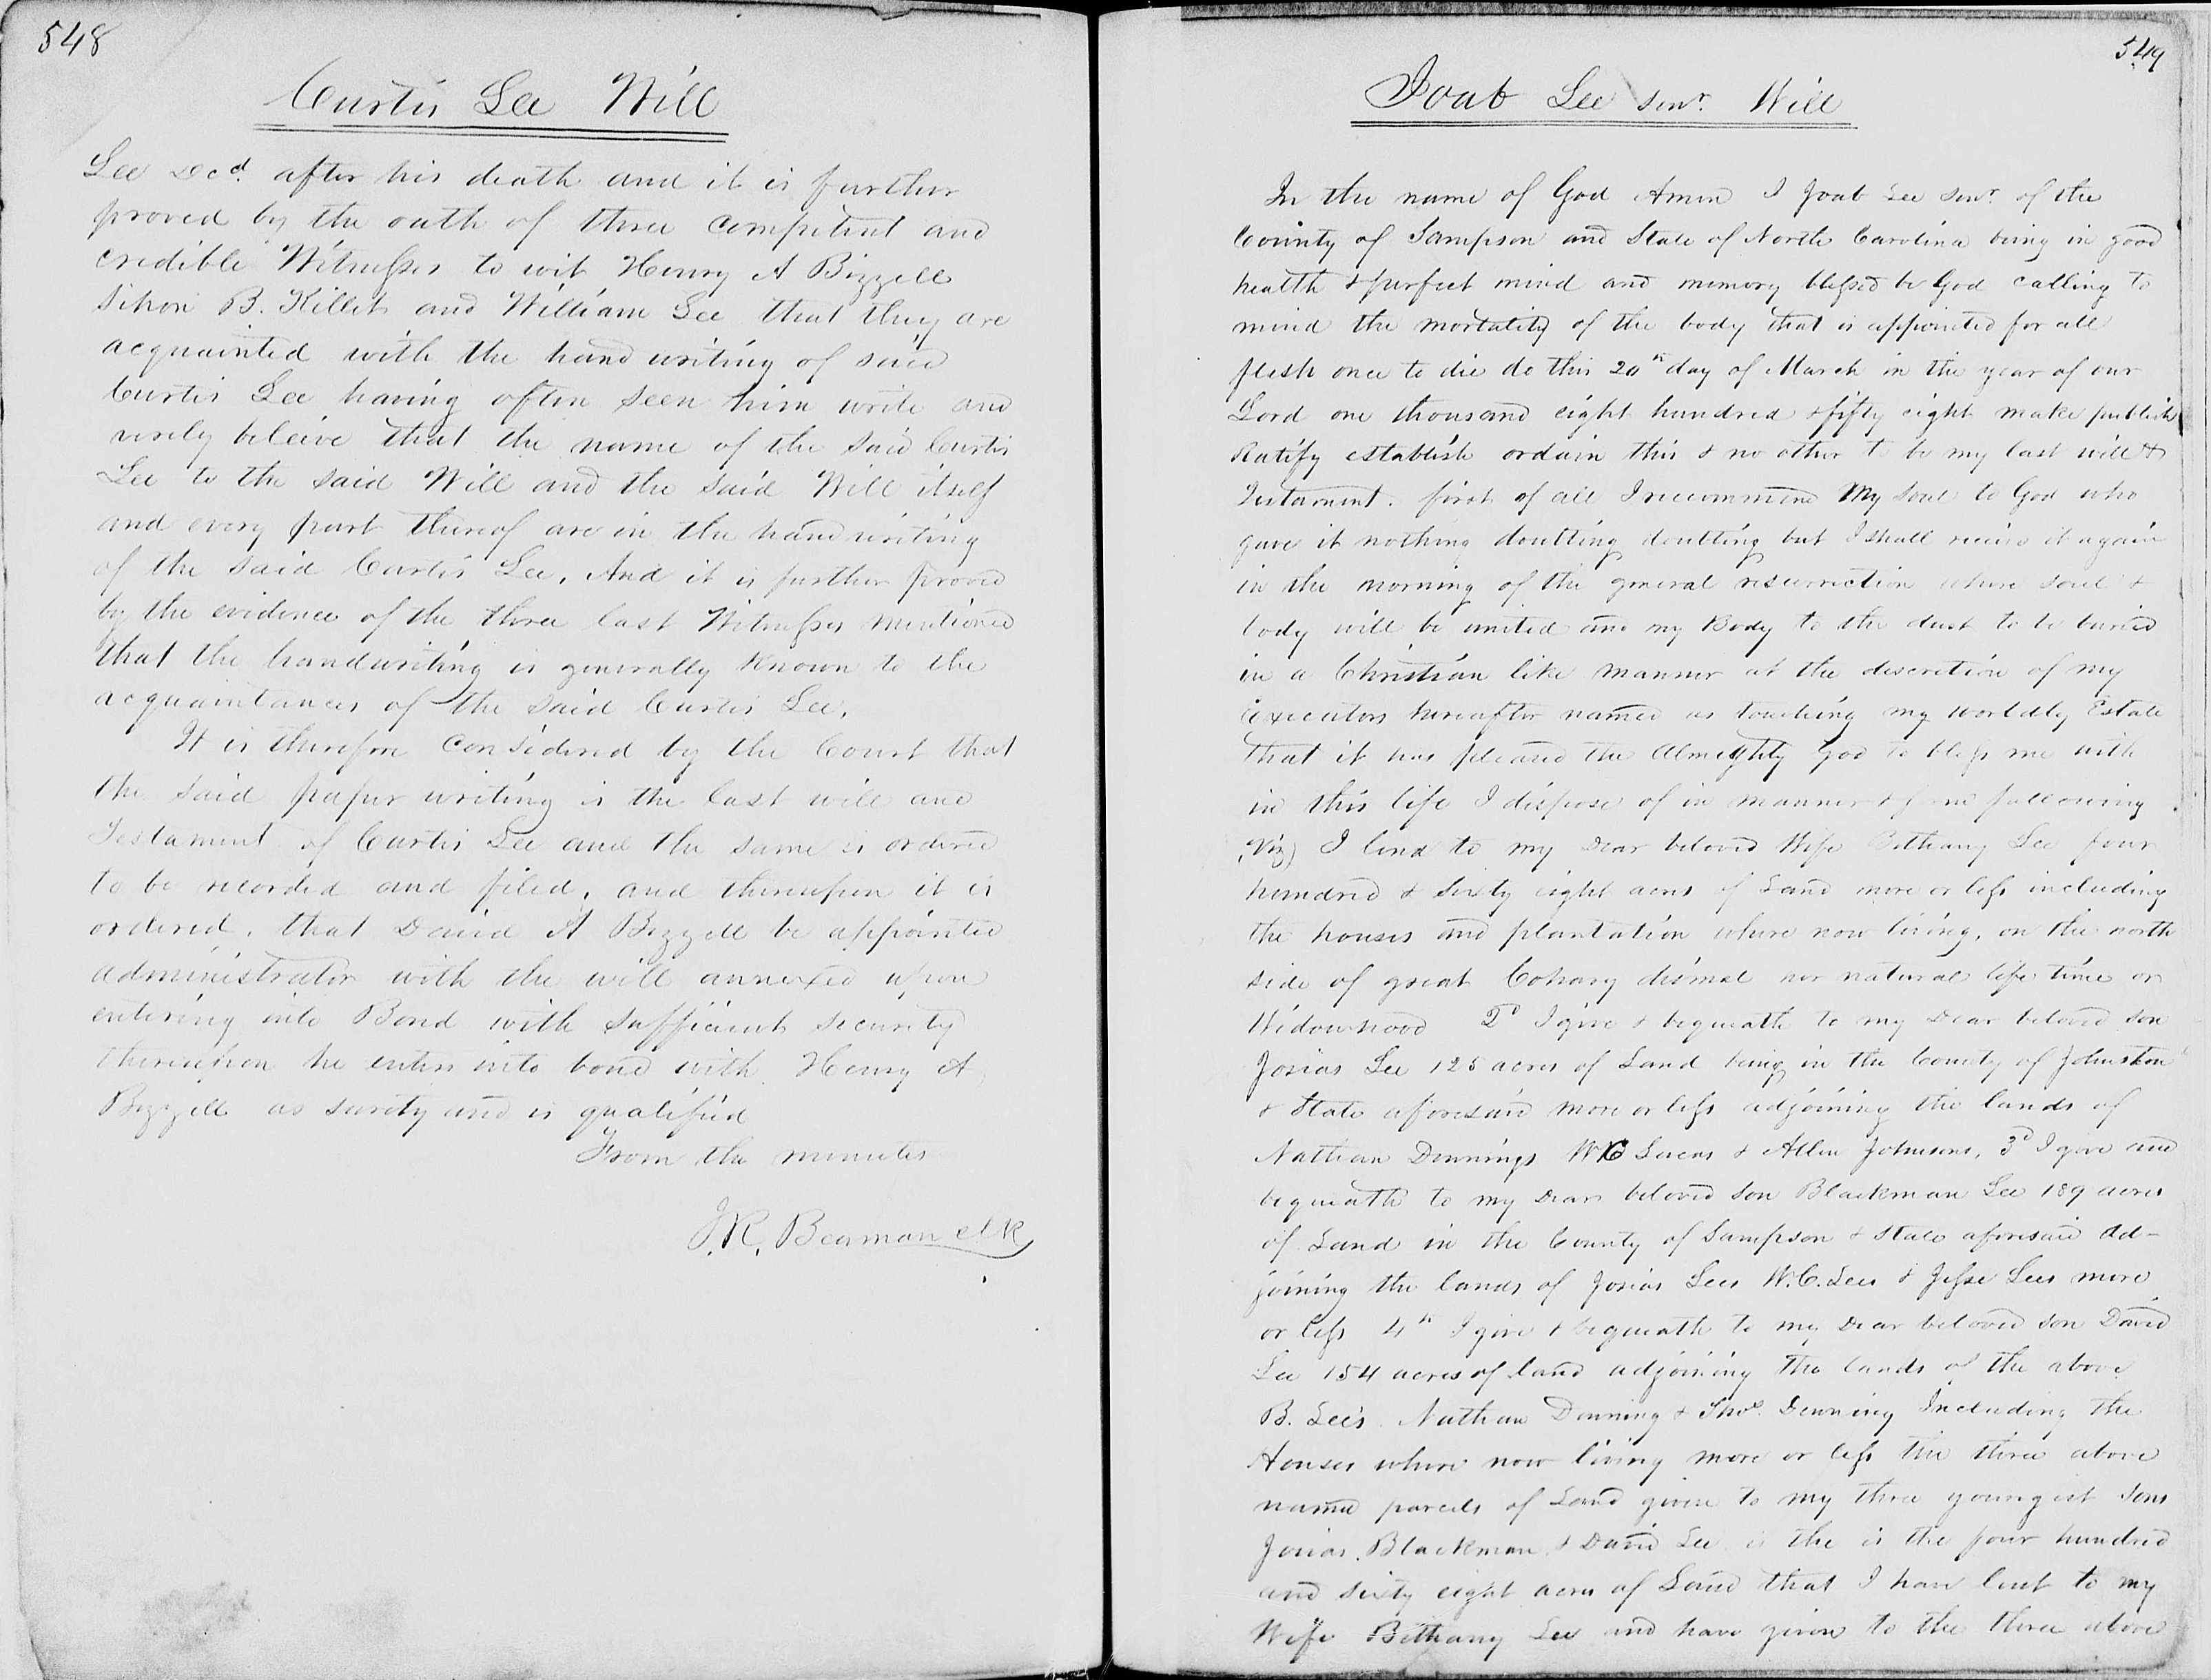 548
Curtis Lee Will
Lee Decd. after his death and it is further
proved by the oath of three competent and
credible Witnesses to wit Henry A Bizzell
Sihon B. Killet and William Lee that they are
acquainted with the hand writing of said
Curtis Lee having often seen him write and
verily beleive that the name of the said Curtis
Lee to the said Will and the said Will itself
and every part thereof are in the hand writing
of the said Curtis Lee, And it is further proved
by the evidence of the three last Witnesses mentioned
that the handwriting is generally Known to the
acquaintances of the said Curtis Lee,
It is therefore Considered by the Court that
the said paper writing is the last will and
Testament of Curtis Lee and the same is ordered
to be recorded and filed, and thereupon it is
ordered, that David A Bizzell be appointed
administrator with the will annexed upon
entering into Bond with sufficient security
thereupon he enters into bond with Henry A
Bizzell as surity and is qualified
From the minutes
J.R. Beaman clk
549
Joab Lee senr. Will
In the name of God Amen I Joab Lee senr. of the
County of Sampson and State of North Carolina being in good
health & perfect mind and memory blessed be God calling to
mind the mortality of the body that is appointed for all
flesh once to die do this 20th day of March in the year of our
Lord one thousand eight hundred & fifty eight make publish
Ratify establish ordain this & no other to be my last will &
Testament. first of all I reccommend My Soul to God who
gave it nothing doubting doubting but I shall recieve it again
in the morning of the general resurrection where soul &
body will be united and my Body to the dust to be buried
in a Christian like manner at the discretion of my
executors hereafter named as touching my worldly Estate
that it has pleased the Almighty God to bless me with
in this life I dispose of in manner & form following
(Viz) I lend to my Dear beloved Wife Bethany Lee four
hundred & sixty eight acres of Land more or less including
the houses and plantation where now living, on the north
side of great Coharry dismal her natural life time or
Widowhood 2d I give & bequeath to my Dear beloved son
Josias Lee 125 acres of Land being in the County of Johnston
& State aforesaid more or less adjoining the lands of
Nathan Dennings W C Lucas & Allen Johnsons, 3d I give and
bequeath to my Dear beloved son Blackman Lee 189 acres
of Land in the County of Sampson & State aforesaid ad-
joining the lands of Josias Lees W.C. Lees & Jesse Lees more
or less 4th I give & bequeath to my Dear beloved son David
Lee 154 acres of land adjoining the lands of the above
B. Lee's Nathan Denning & Thos. Denning Including the
Houses where now living more or less the three above
named parcels of Land given to my three youngest sons
Josias, Blackman, & David Lee is the is the four hundred
and sixty eight acres of Land that I have lent to my
Wife Bethany Lee and have given to the three above